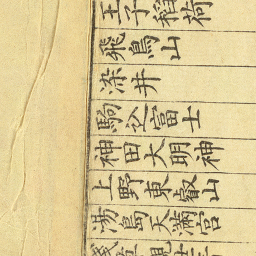 王子稲荷
飛鳥山
染井
駒込冨士
神田大明神
上野東叡山
湯島天満宮